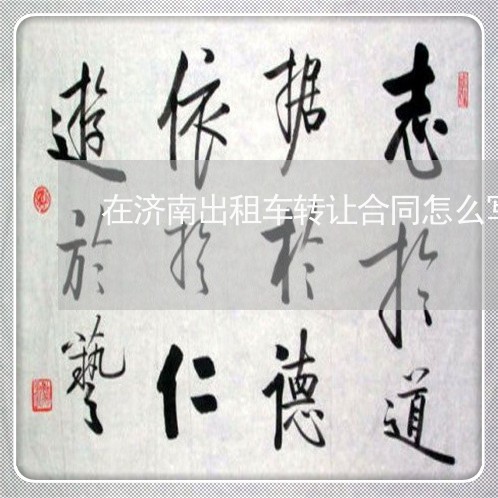 志於道
据於德
依於仁
遊於藝
在济南出租车转让合同怎么写